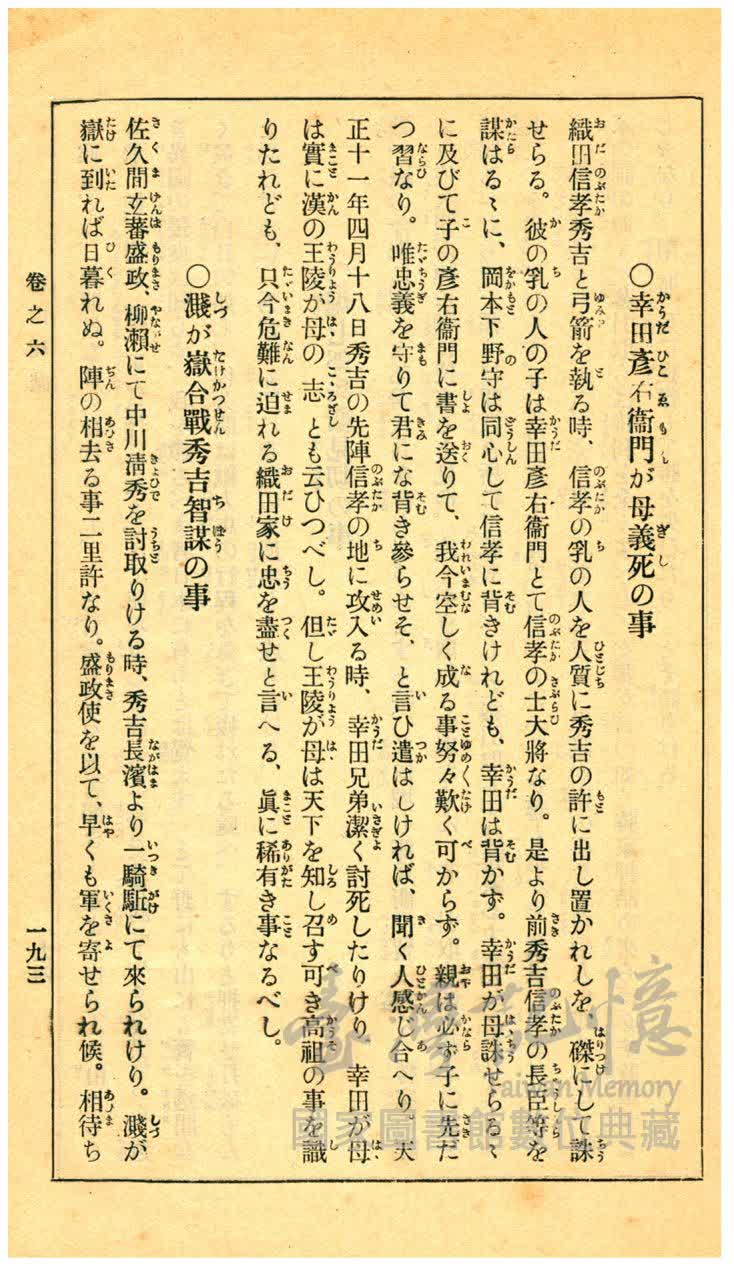 ○幸田彥右衞門が母義死の事
織田信孝秀吉と弓箭を執る時、信孝の乳の人を人質に秀吉の許に出し置かれしを、磔にして誅
せらる。彼の乳の人の子は幸田彥右衞門とて信孝の士大將なり。是より前秀吉信孝の長臣等を
謀はるゝに、岡本下野守は同心して信孝に背きけれども、幸田は背かず。幸田が母誅せらるゝ
に及びて子の彥右衞門に書を送りて、我今空しく成る事努々歎く可からず。親は必ず子に先だ
つ習なり。唯忠義を守りて君にな背き參らせそ、と言ひ遣はしければ、聞く人感じ合へり。天
正十一年四月十八日秀吉の先陣信孝の地に攻入る時、幸田兄弟潔く討死したりけり　幸田が母
は實に漢の王陵が母の志とも云ひつべし。但し王陵が母は天下を知し召す可き高祖の事を識
りたれども、只今危難に迫れる織田家に忠を盡せと言へる、眞に稀有き事なるべし。
○濺が嶽合戰秀吉智謀の事
佐久間玄蕃盛政、柳瀨にて中川淸秀を討取りける時、秀吉長濱より一騎駈にて來られけり。濺が
嶽に到れば日暮れぬ。陣の相去る事二里許なり。盛政使を以て、早くも軍を寄せられ候。相待ち
卷之六
一九三
臺灣記憶
Taiwan Memory
國家圖書館數位典藏